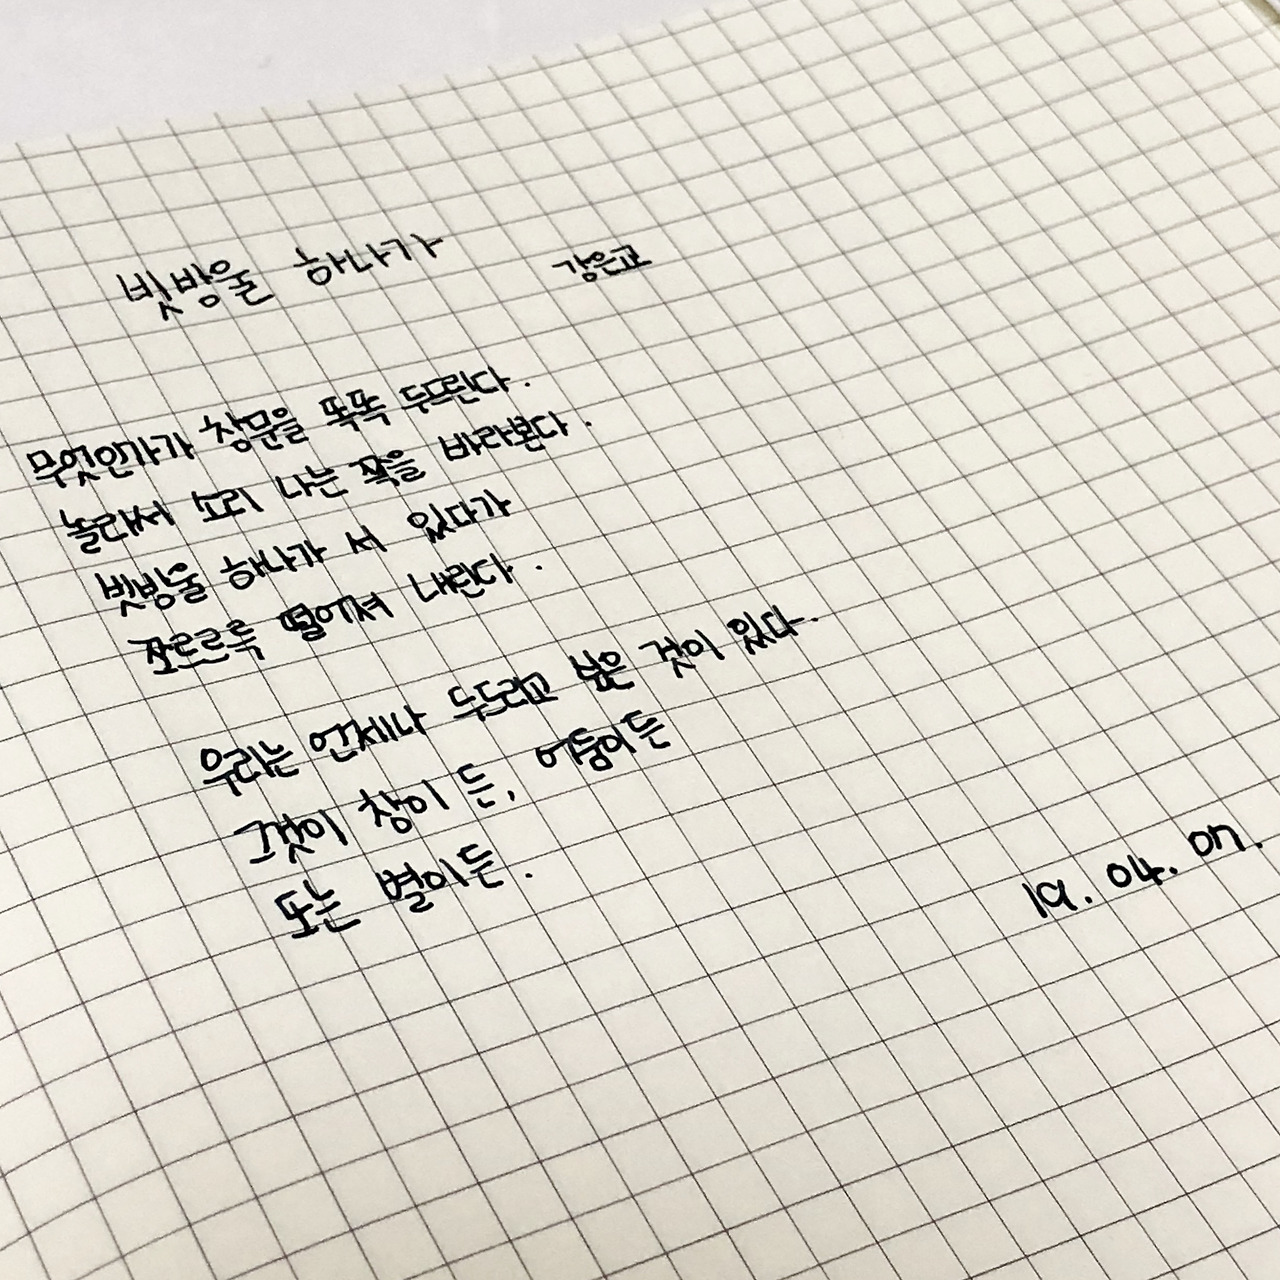 빗방울 하나가 강은교
무엇인가가 창문을 똑똑 두드린다.
놀라서 소리 나는 쪽을 바라본다.
빗방울 하나가 서 있다가
쪼르르륵 떨어져 내린다.
우리는 언제나 두드리고 싶은 것이 있다.
그것이 창이든, 어둠이든
또는 별이든.
19. 04. 07.